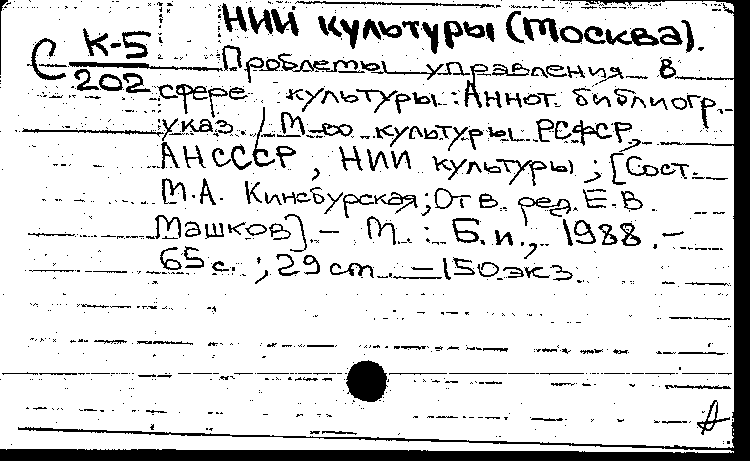 НИИ культуры (Москва).
С К-5
202
Проблемы управления в
сфере культуры : Аннот. библиогр.
указ. / М-во культуры РСФСР,
АН СССР, НИИ культуры ; [Сост.
М.А. Кинсбурская; Отв. ред. Е.В.
Машков] - М. : Б.и., 1988. -
65 с. ; 29 cm. - 150 экз.